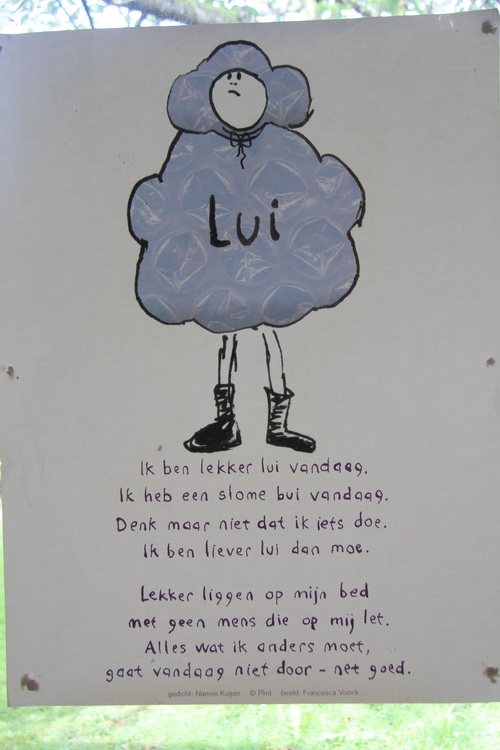 Lui
Ik ben lekker lui vandaag.
Ik heb een slome bui vandaag.
Denk maar niet dat ik iets doe.
Ik ben liever lui dan moe.
Lekker liggen op mijn bed
met geen mens die op mij let.
Alles wat ik anders moet,
gaat vandaag niet door - net goed.
gedicht: Nannie Kuiper © Plint beeld: Francesca Vonck